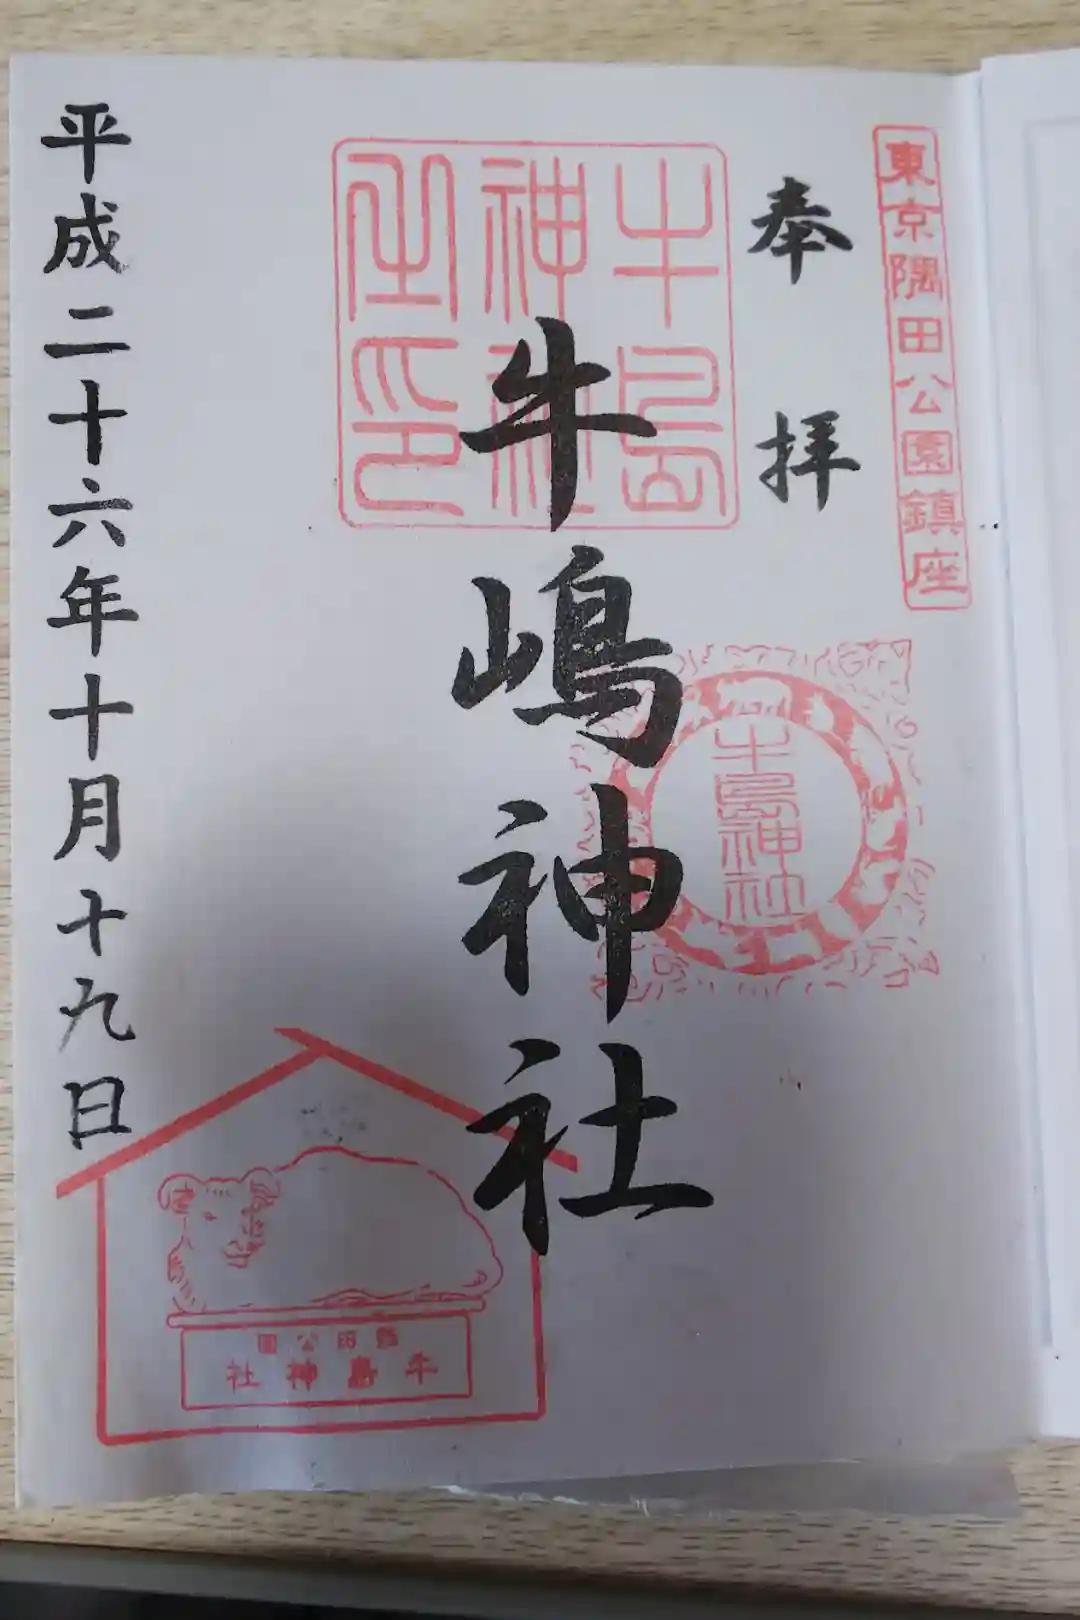 東京隅田公園鎮座
奉拝
牛嶋神社
牛島
神社
之印
牛島神社
平成二十六年十月十九日
隅田公園
牛島神社